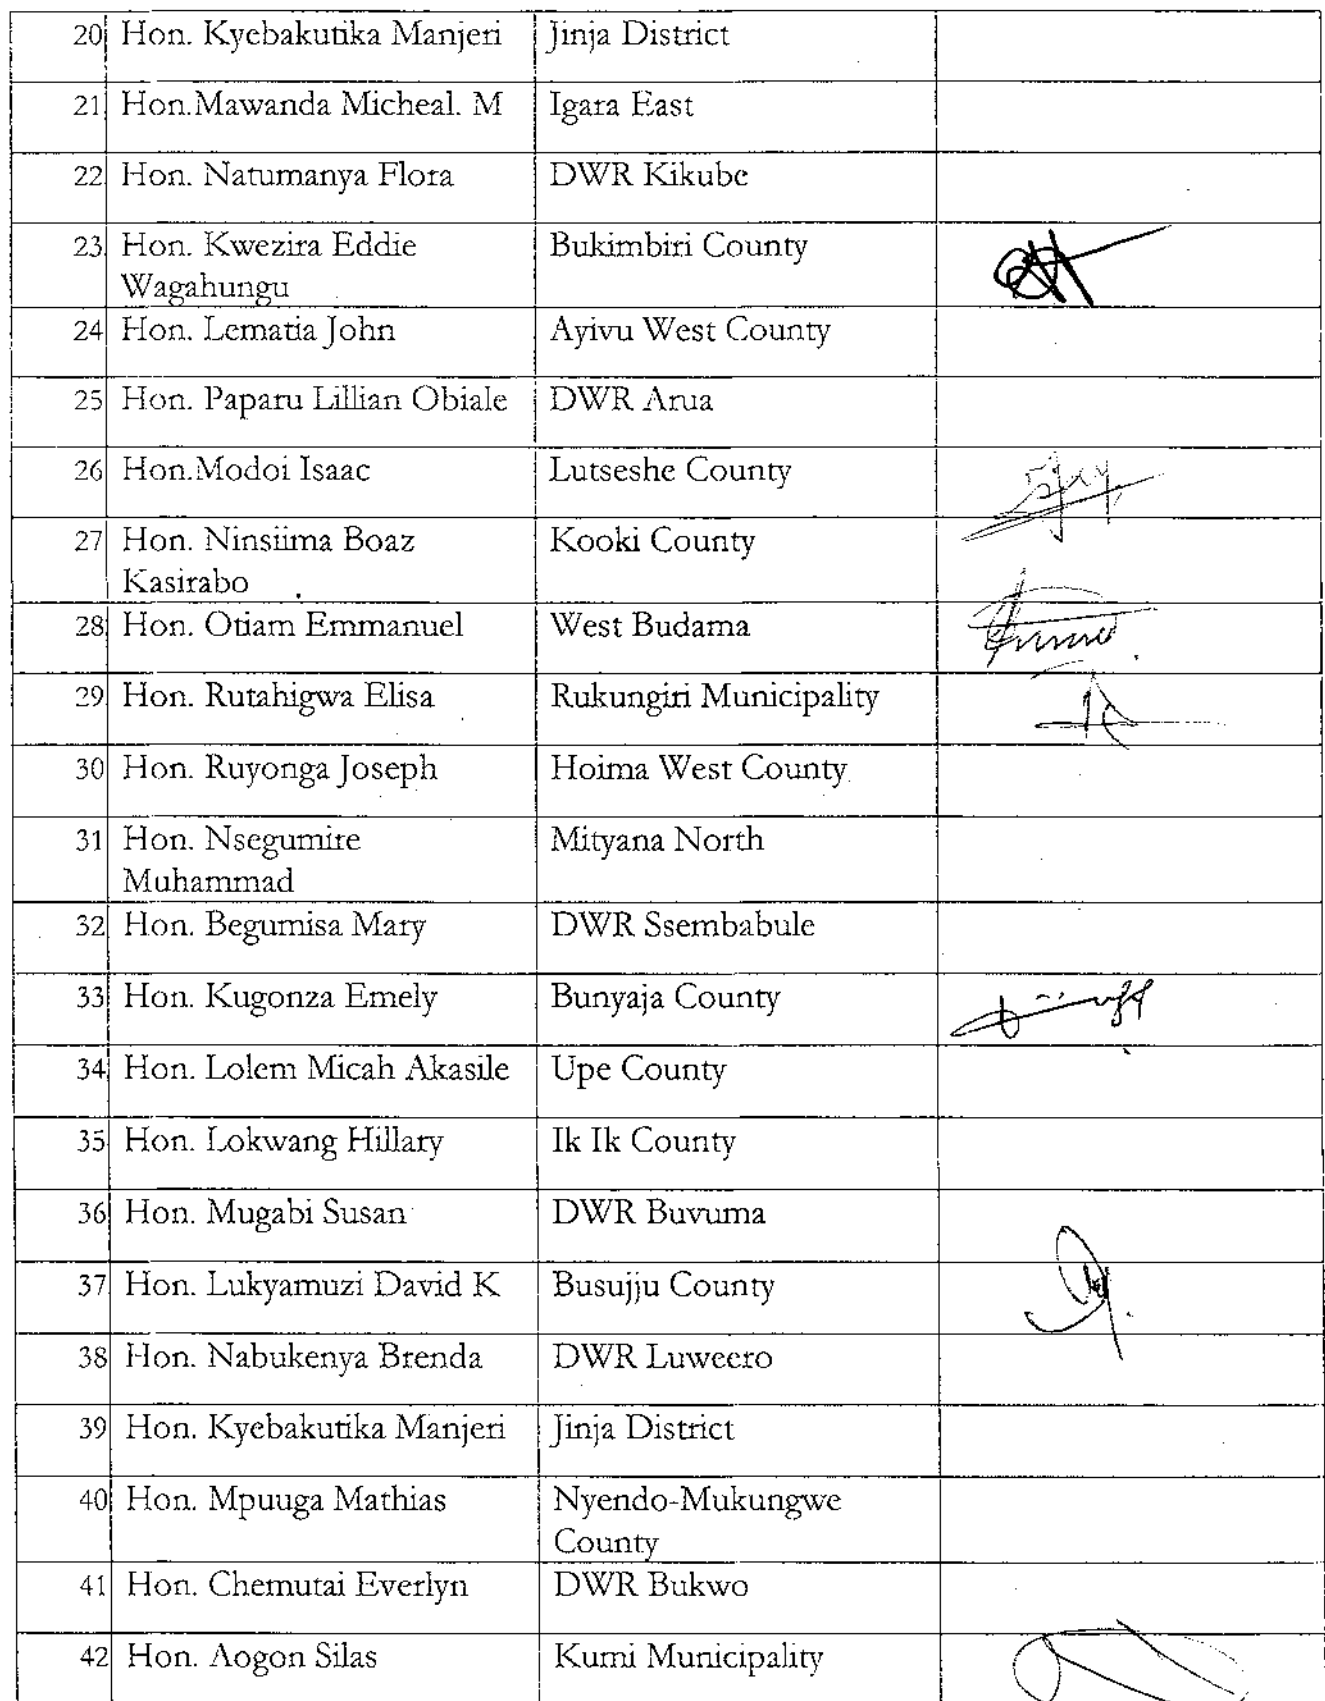 20 Hon. Kyebakutika Manjeri Jinja District
21 Hon.Mawanda Micheal. M Igara East
22 Hon. Natumanya Flora DWR Kikube
23 Hon. Kwezira Eddie Bukimbiri County
Wagahungu
24 Hon. Lematia John Ayivu West County
25 Hon. Paparu Lillian Obiale DWR Arua
26 Hon.Modoi Isaac Lutseshe County
27 Hon. Ninsiima Boaz Kooki County
Kasirabo
28 Hon. Otiam Emmanuel West Budama
29 Hon. Rutahigwa Elisa Rukungiri Municipality
30 Hon. Ruyonga Joseph Hoima West County
31 Hon. Nsegumire Mityana North
Muhammad
32 Hon. Begumisa Mary DWR Ssembabule
33 Hon. Kugonza Emely Bunyaja County
34 Hon. Lolem Micah Akasile Upe County
35 Hon. Lokwang Hillary Ik Ik County
36 Hon. Mugabi Susan DWR Buvuma
37 Hon. Lukyamuzi David K Busujju County
38 Hon. Nabukenya Brenda DWR Luweero
39 Hon. Kyebakutika Manjeri Jinja District
40 Hon. Mpuuga Mathias Nyendo-Mukungwe
County
41 Hon. Chemutai Everlyn DWR Bukwo
42 Hon. Aogon Silas Kumi Municipality